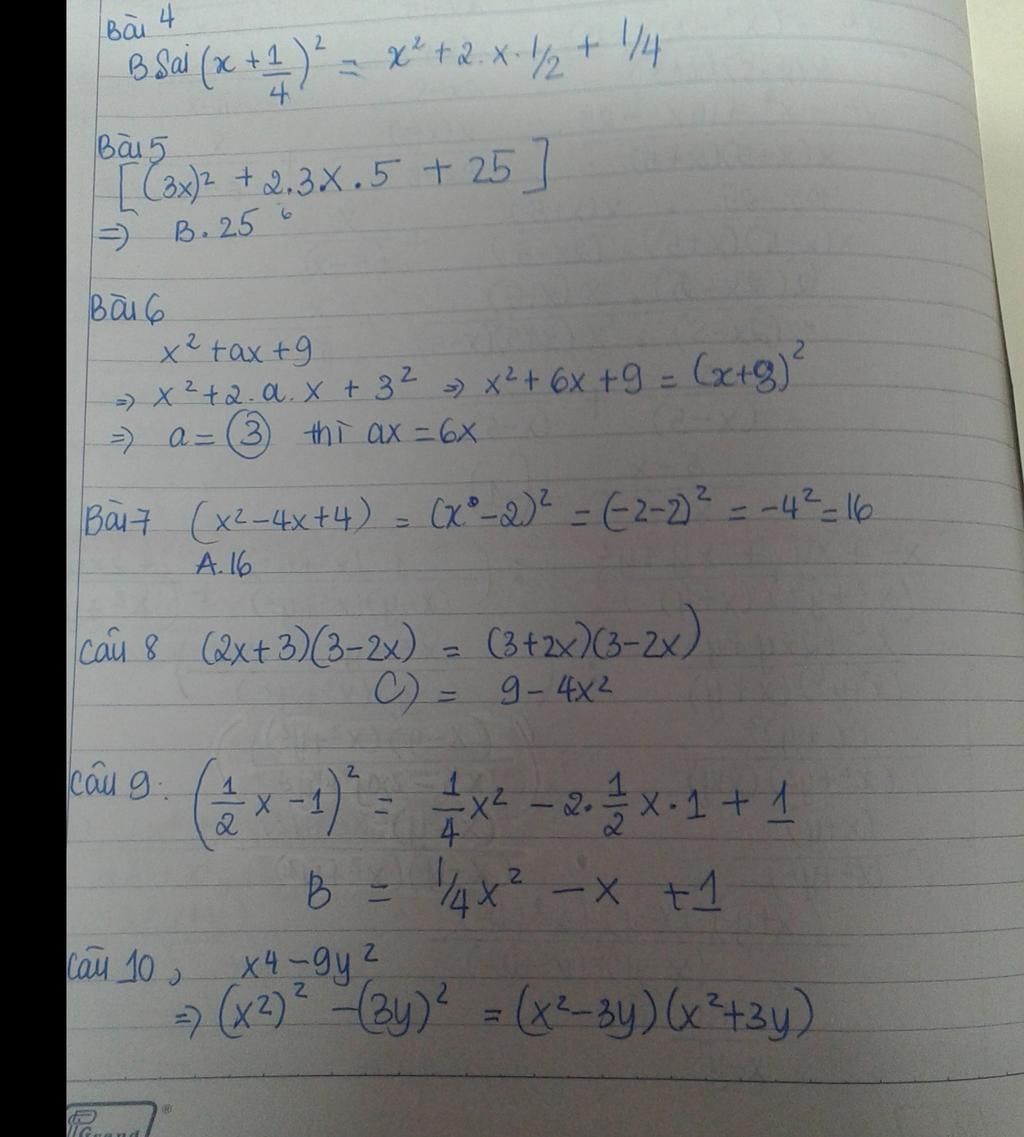 Bài 4
B Sai (x + 1/4)² = x² + 2.x.1/2 + 1/4
Bài 5
[(3x)² + 2.3x.5 + 25]
=> B.25
Bài 6
x² + ax + 9
=> x² + 2.a.x + 3² => x² + 6x + 9 = (x+3)²
=> a = 3 thì ax = 6x
Bài 7 (x² - 4x + 4) = (x - 2)² = (-2-2)² = -4² = 16
A.16
Câu 8 (2x+3)(3-2x) = (3+2x)(3-2x)
C) = 9 - 4x²
Câu 9: (1/2 x - 1)² = 1/4 x² - 2.1/2 x.1 + 1
B = 1/4x² - x + 1
Câu 10, x4 - 9y²
=> (x²)² - (3y)² = (x² - 3y)(x² + 3y)